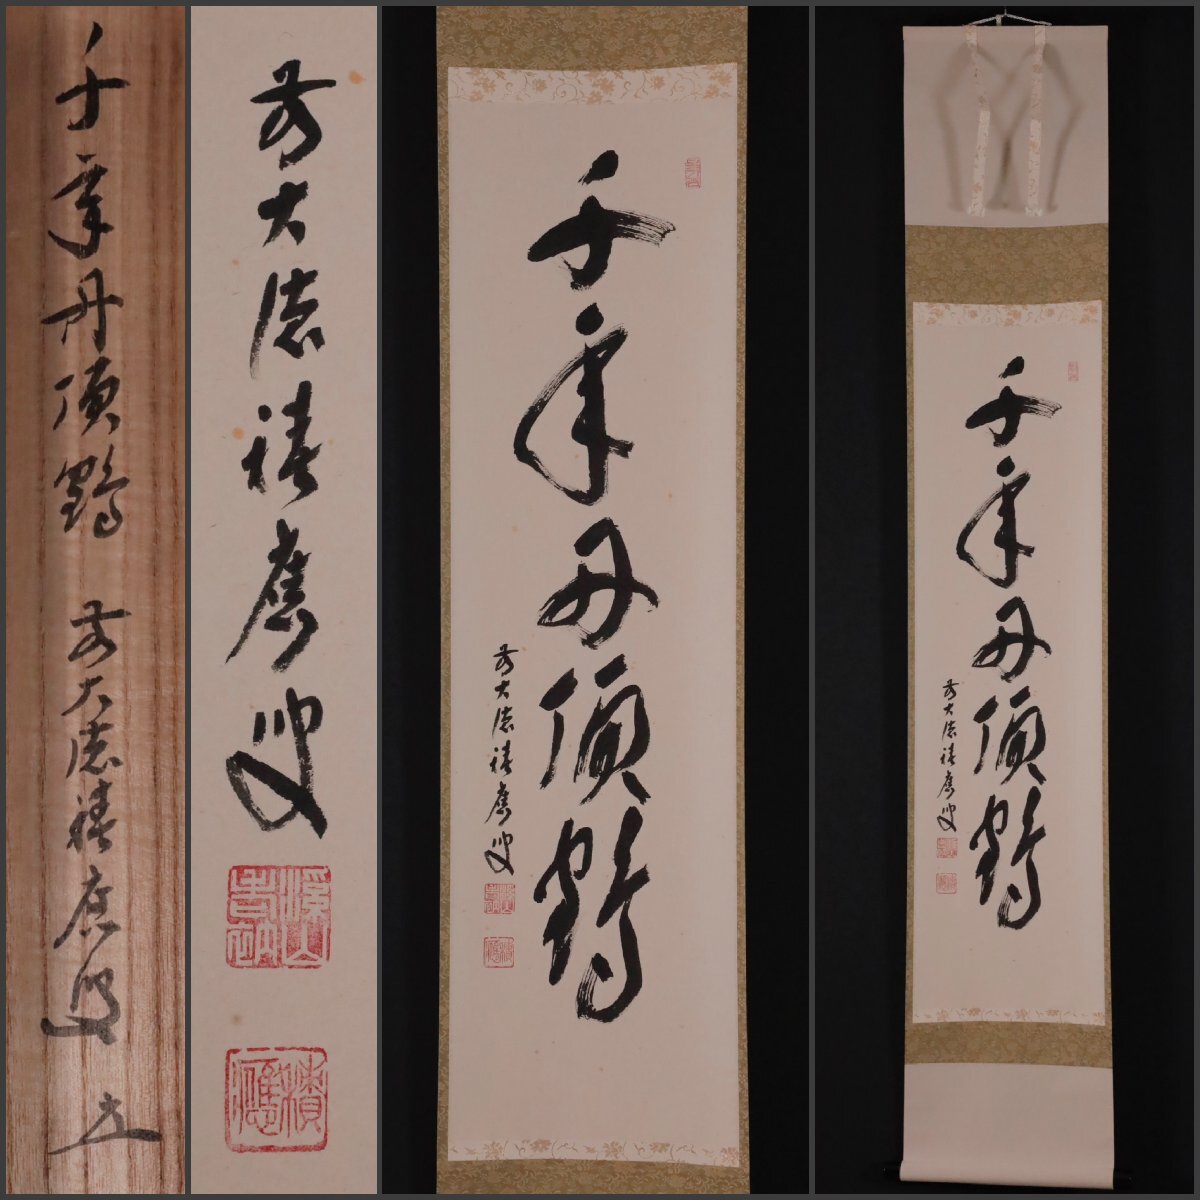 千年丹頂鶴 前大徳積應叟
前大徳積應叟
積應
千年丹頂鶴
前大徳積應叟
千年丹頂鶴
前大徳積應叟